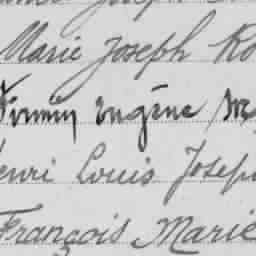 Marie Joseph Ro
Firmin Eugène M
enri Louis Josep
François Marie